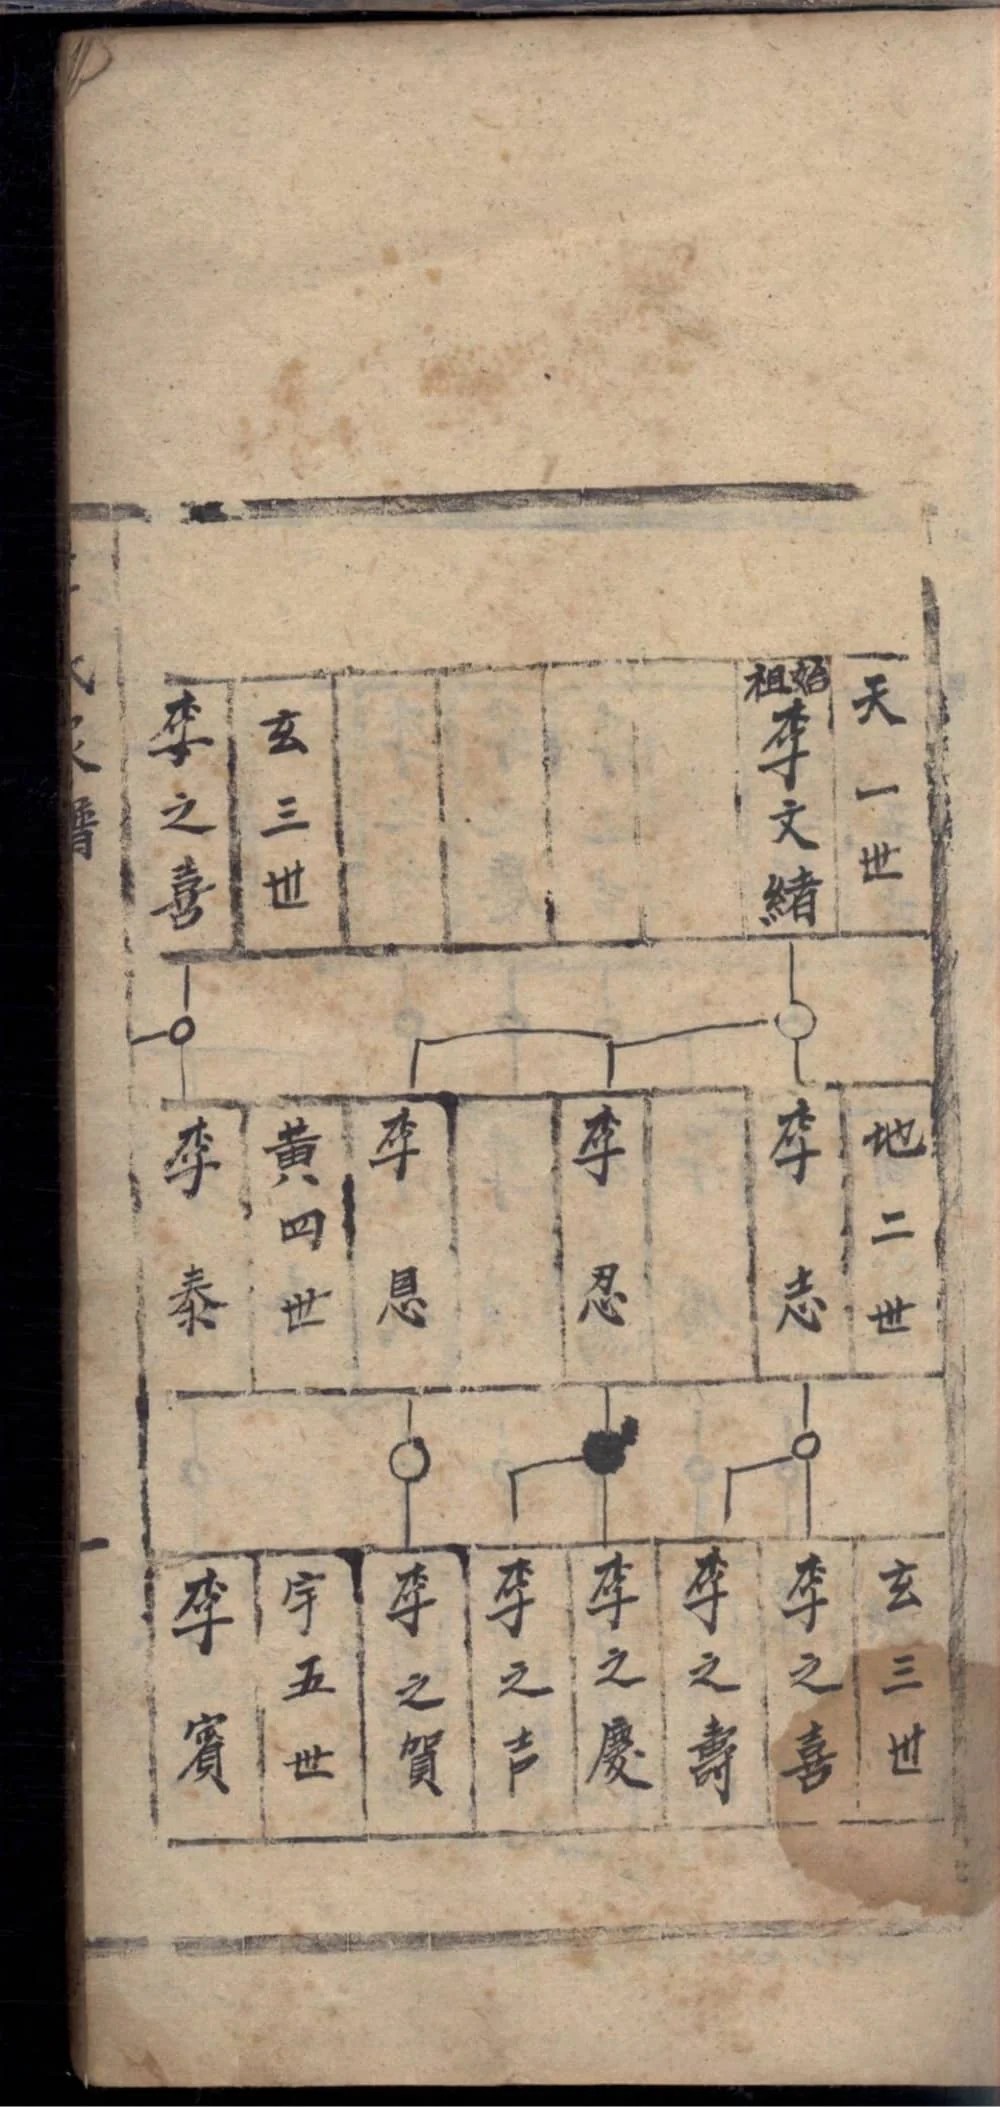 天一世
始祖
李文緒
玄三世
李之喜
地二世
李志
李忍
李
黄四世
李泰
玄三世
李之喜
李之壽
李之慶
李之声
李之賀
宇五世
李賓
譜